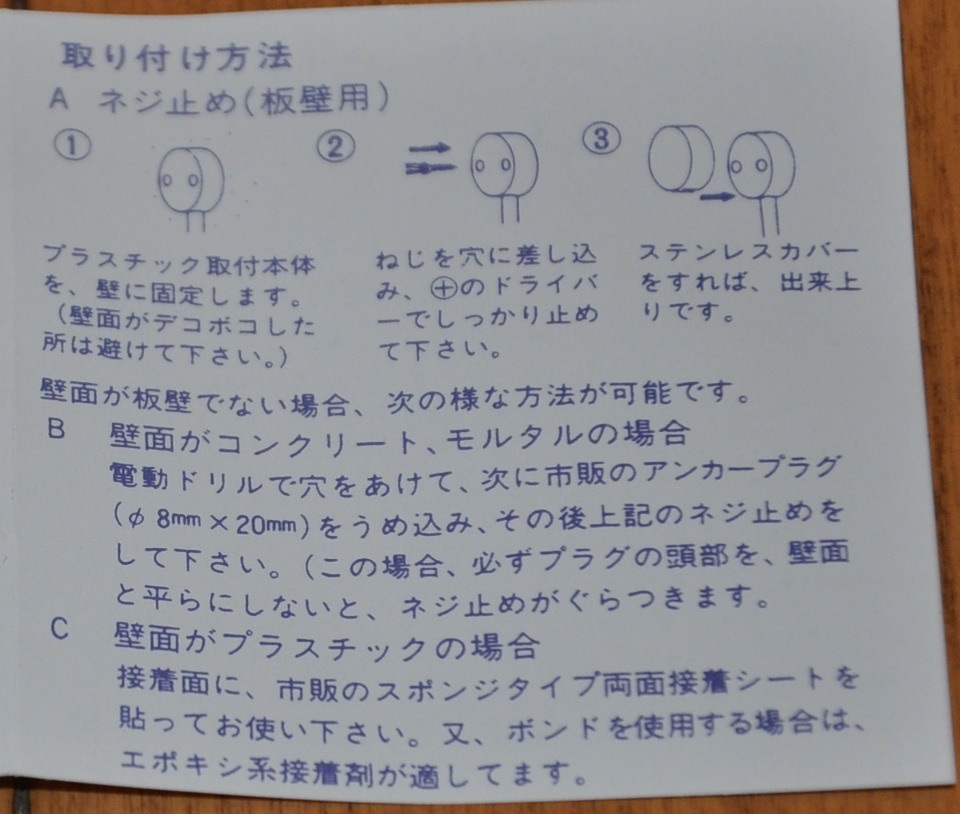 取り付け方法
A ネジ止め(板壁用)
①
プラスチック取付本体
を、壁に固定します。
(壁面がデコボコした
所は避けて下さい。)
②
ねじを穴に差し込
み、⊕のドライバ
ーでしっかり止め
て下さい。
③
ステンレスカバー
をすれば、出来上
りです。
壁面が板壁でない場合、次の様な方法が可能です。
B 壁面がコンクリート、モルタルの場合
電動ドリルで穴をあけて、次に市販のアンカープラグ
(φ8mm×20mm)をうめ込み、その後上記のネジ止めを
して下さい。(この場合、必ずプラグの頭部を、壁面
と平らにしないと、ネジ止めがぐらつきます。
C 壁面がプラスチックの場合
接着面に、市販のスポンジタイプ両面接着シートを
貼ってお使い下さい。又、ボンドを使用する場合は、
エポキシ系接着剤が適してます。